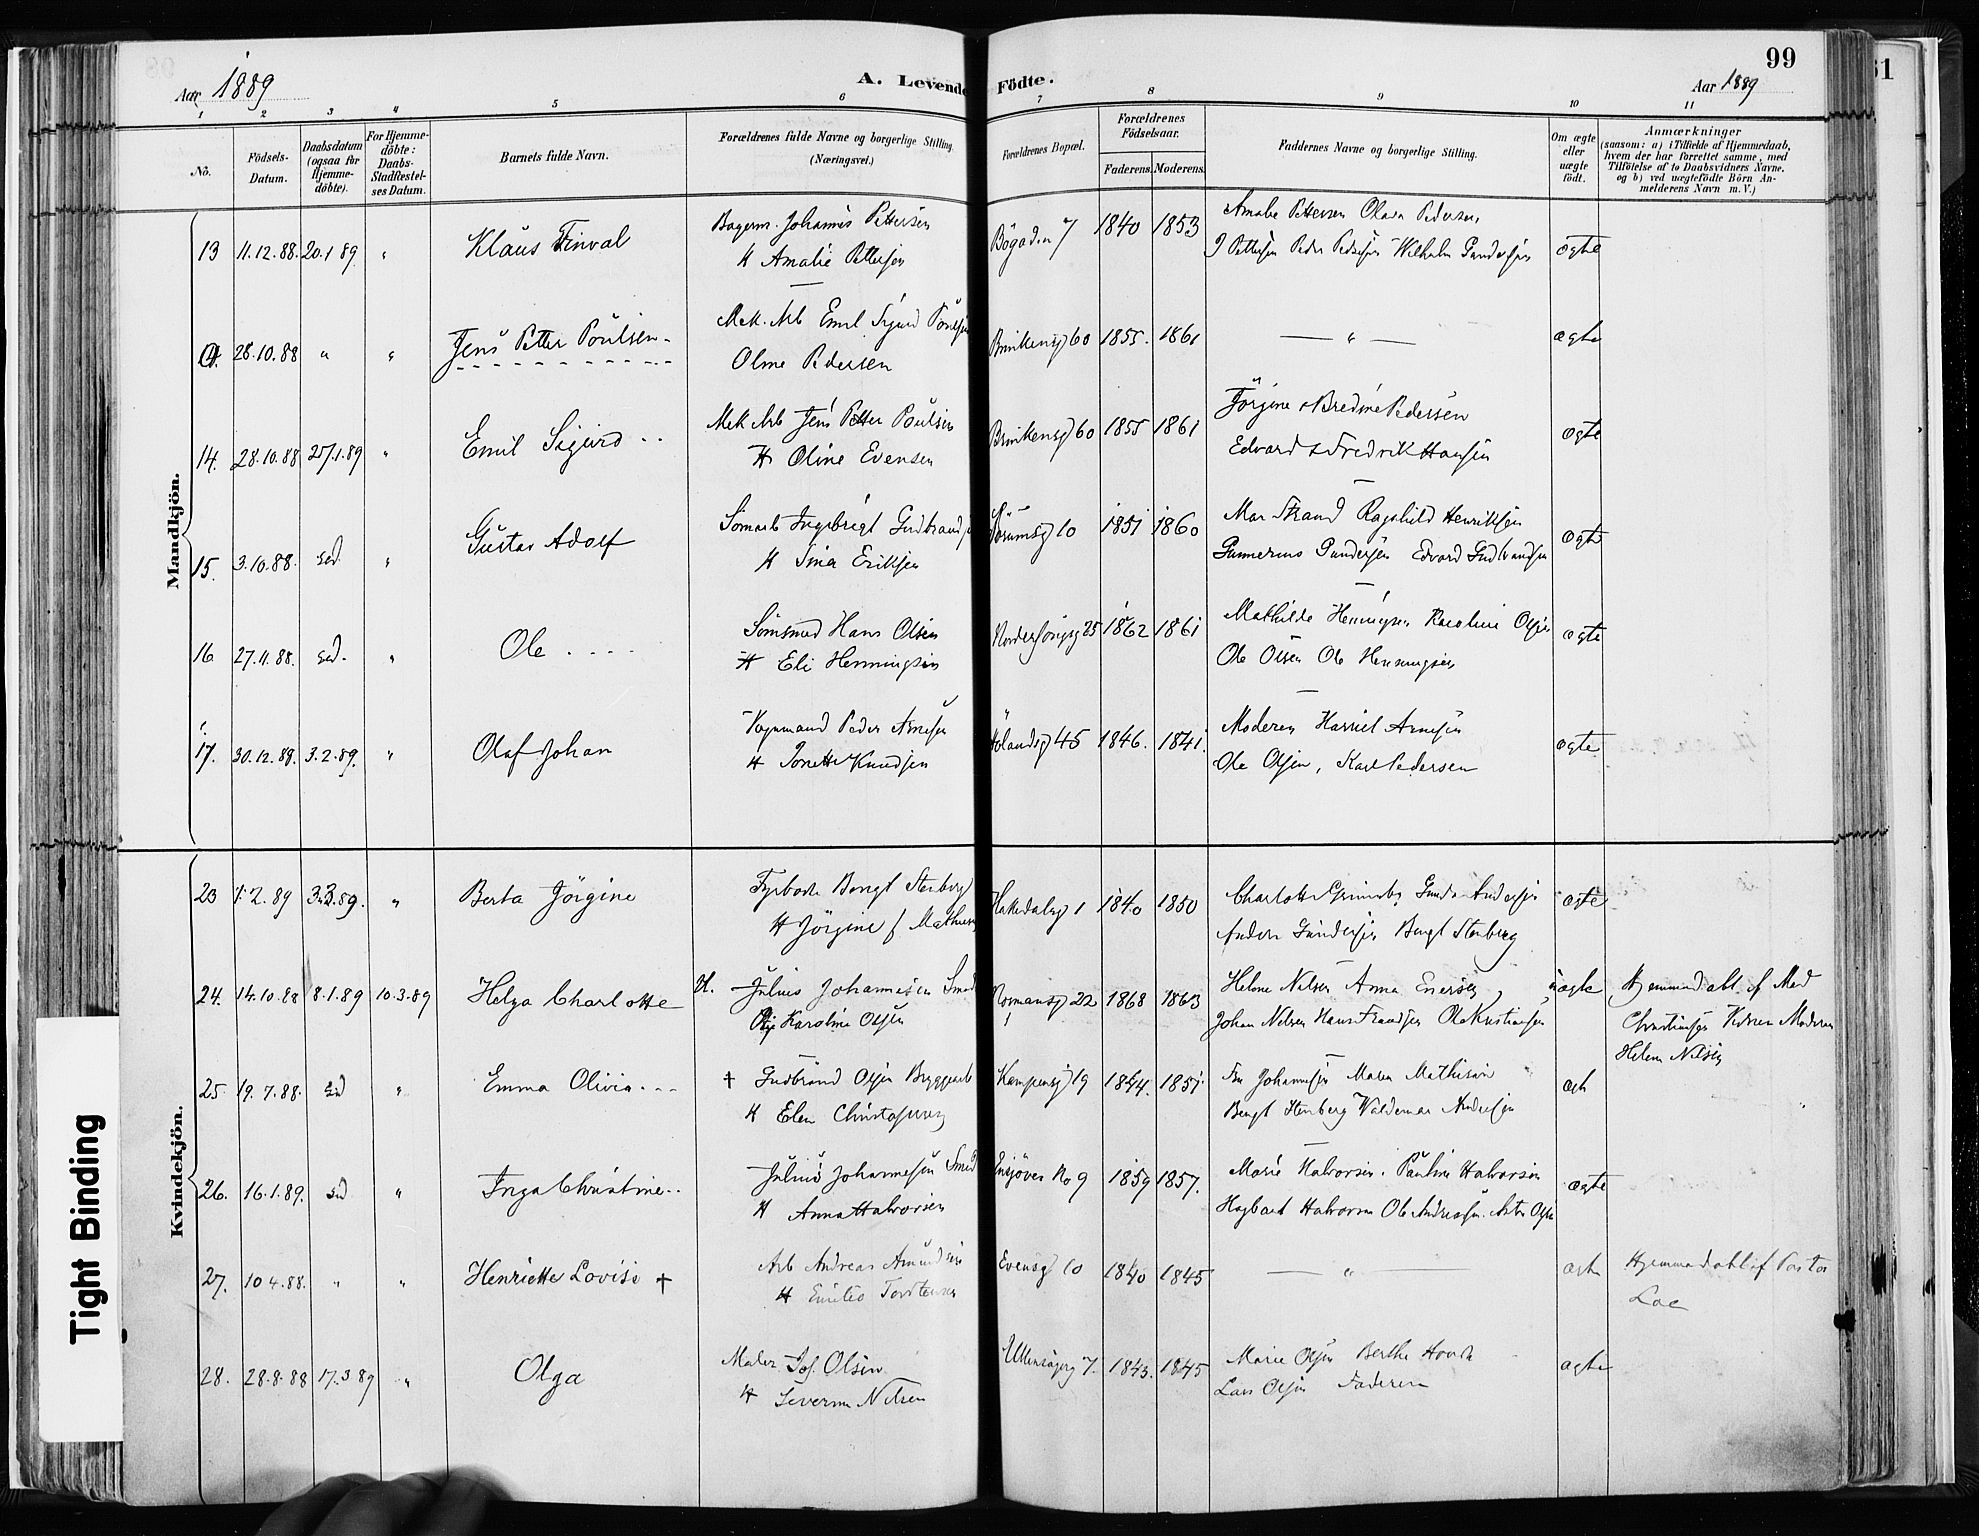 99
61
Aar 1889
A. Levende Födte.
Aar 1889
1 2 3 4 5 6 7 8 9 10 11
No.
Födsels-Datum.
Daabsdatum (ogsaa for Hjemme-döbte).
For Hjemme-döbte: Daabs-Stadfæstel-ses Datum.
Barnets fulde Navn.
Forældrenes fulde Navne og borgerlige Stilling.
(Næringsvei.)
Forældrenes Bopæl.
Forældrenes Födselsaar.
Faderens. Moderens.
Faddernes Navne og borgerlige Stilling.
Om ægte eller uægte födt.
Anmærkninger
(saasom: a) i Tilfælde af Hjemmedaab,
hvem der har forrettet samme, med
Tilföielse af to Daabsvidners Navne,
og b) ved uægtefödte Börn An-
melderens Navn m. V.)
Mandkjön.
13 11.12.88. 20.1 89 " Klaus Finval
Bagerm. Johannes Pettersen
H Amalie Pettersen
Bögaden 7 1840 1853
Amalie Pettersen Olava Pedersen
J Pettersen Peder Pedersen Wilhelm Gundersen
ægte
28.10.88 " " Jens Petter Poulsen
Mek. Arb Emil Sigurd
Olme Pedersen
Brinkensg 60 1855. 1861
— " —
ægte
14. 28.10.88 27/1.89 " Emil Sigurd
Mek Arb Jens Petter Poulsen
H Oline Evensen
Brinkensg 60 1855 1861
Jörgine & Bredine Pedersen
Edvard & Fredrik Hansen
ægte
15. 3.10.88. sed " Gustav Adolf
Sömarb Ingebrigt Gudbrands
H Sina Eriksen
Sörumsg 10 1851 1860
Mar Strand Ragnhild Henriksen
Gunnerius Gundersen Edvard Gudbrandsen
ægte
16 27.11.88. sed. " Ole
Sömsmed Hans Olsen
H Eli Henningsen
25 1862 1861
Mathilde Henningsen Karoline Olsen
Ole Olsen Ole Henningsen
ægte
17. 30.12.88. 3.2.89. " Olaf Johan
Vognmand Peder Arnesen
H Jonette Knudsen
Hölandsg 45 1846. 1841.
Moderen Harriet Arnesen
Ole Olsen, Karl Pedersen
ægte
Kvindekjön.
23 1.2.89 3.3.89. " Berta Jörgine
Fyrböder Bengt Stenberg
H Jörgine f Mathisen
Hakedalsg 1 1840 1850
Charlotte Gunda Andersen
Anders Gundersen Bengt Stenberg
ægte
24. 14.10.88 8.1.89 10.3.89 Helga Charlotte
U. Julius Johannesen Smed
Pige Karoline Olsen
Normansg 22 1868 1863
Helene Nelsen Anna Enersen
Johan Nelsen Hans Frandsen Ole Kristiansen
uægte
Hjemmedöbt af Mad
Christiansen Vidner Moderen
Helene Nilsen
25. 19.7.88. sed " Emma Olivia
† Gudbrand Olsen Bryggearb
H Elen Christophersen
Kampensg 19 1844. 1851.
Johannesen Maren Mathisen
Bengt Stenberg Valdemar Andersen
ægte
26. 16.1.89. sed " Inga Christine
Julius Johannesen Smed
H Anna Halvorsen
Ensjöven No 9 1859 1857.
Marie Halvorsen. Pauline Halvorsen
Hagbart Halvorsen Ole Andreassen. Olsen
ægte
27. 10 4.88. " " Henriette Lovise †
Arb Andreas Amundsen
H Emilie Torstensen
Evensg 10 1840 1845
— " —
ægte
Hjemmedöbt af Pastor
28. 28.8.88 17.3 89 " Olga
Maler Jof. Olsen
H Severine Nilsen
Ullensagerg 7. 1843. 1845
Marie Olsen Berthe
Lars Olsen Faderen
ægte
Tight Binding